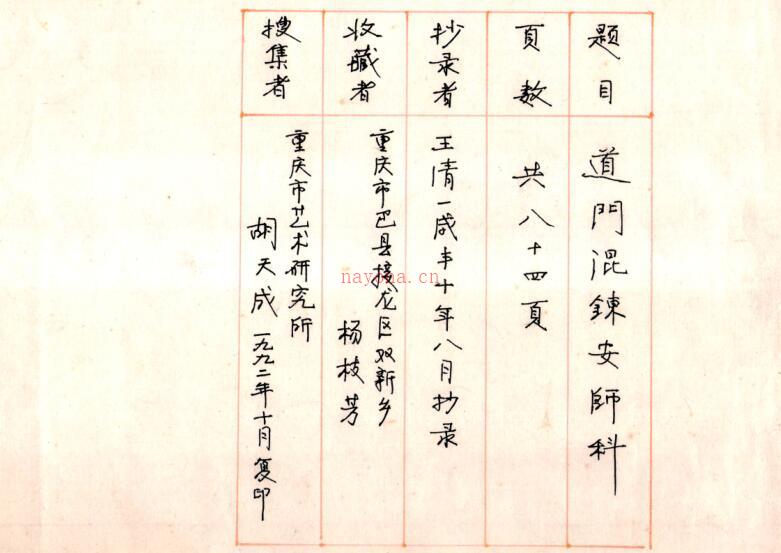 题目
道門混錬安師科
頁数
共八十四頁
抄录者
王清一咸丰十年八月抄录
收藏者
重庆市巴县接龙区双新乡
杨枝芳
搜集者
重庆市艺术研究所
胡天成一九九二年十月复印
nayona.cn